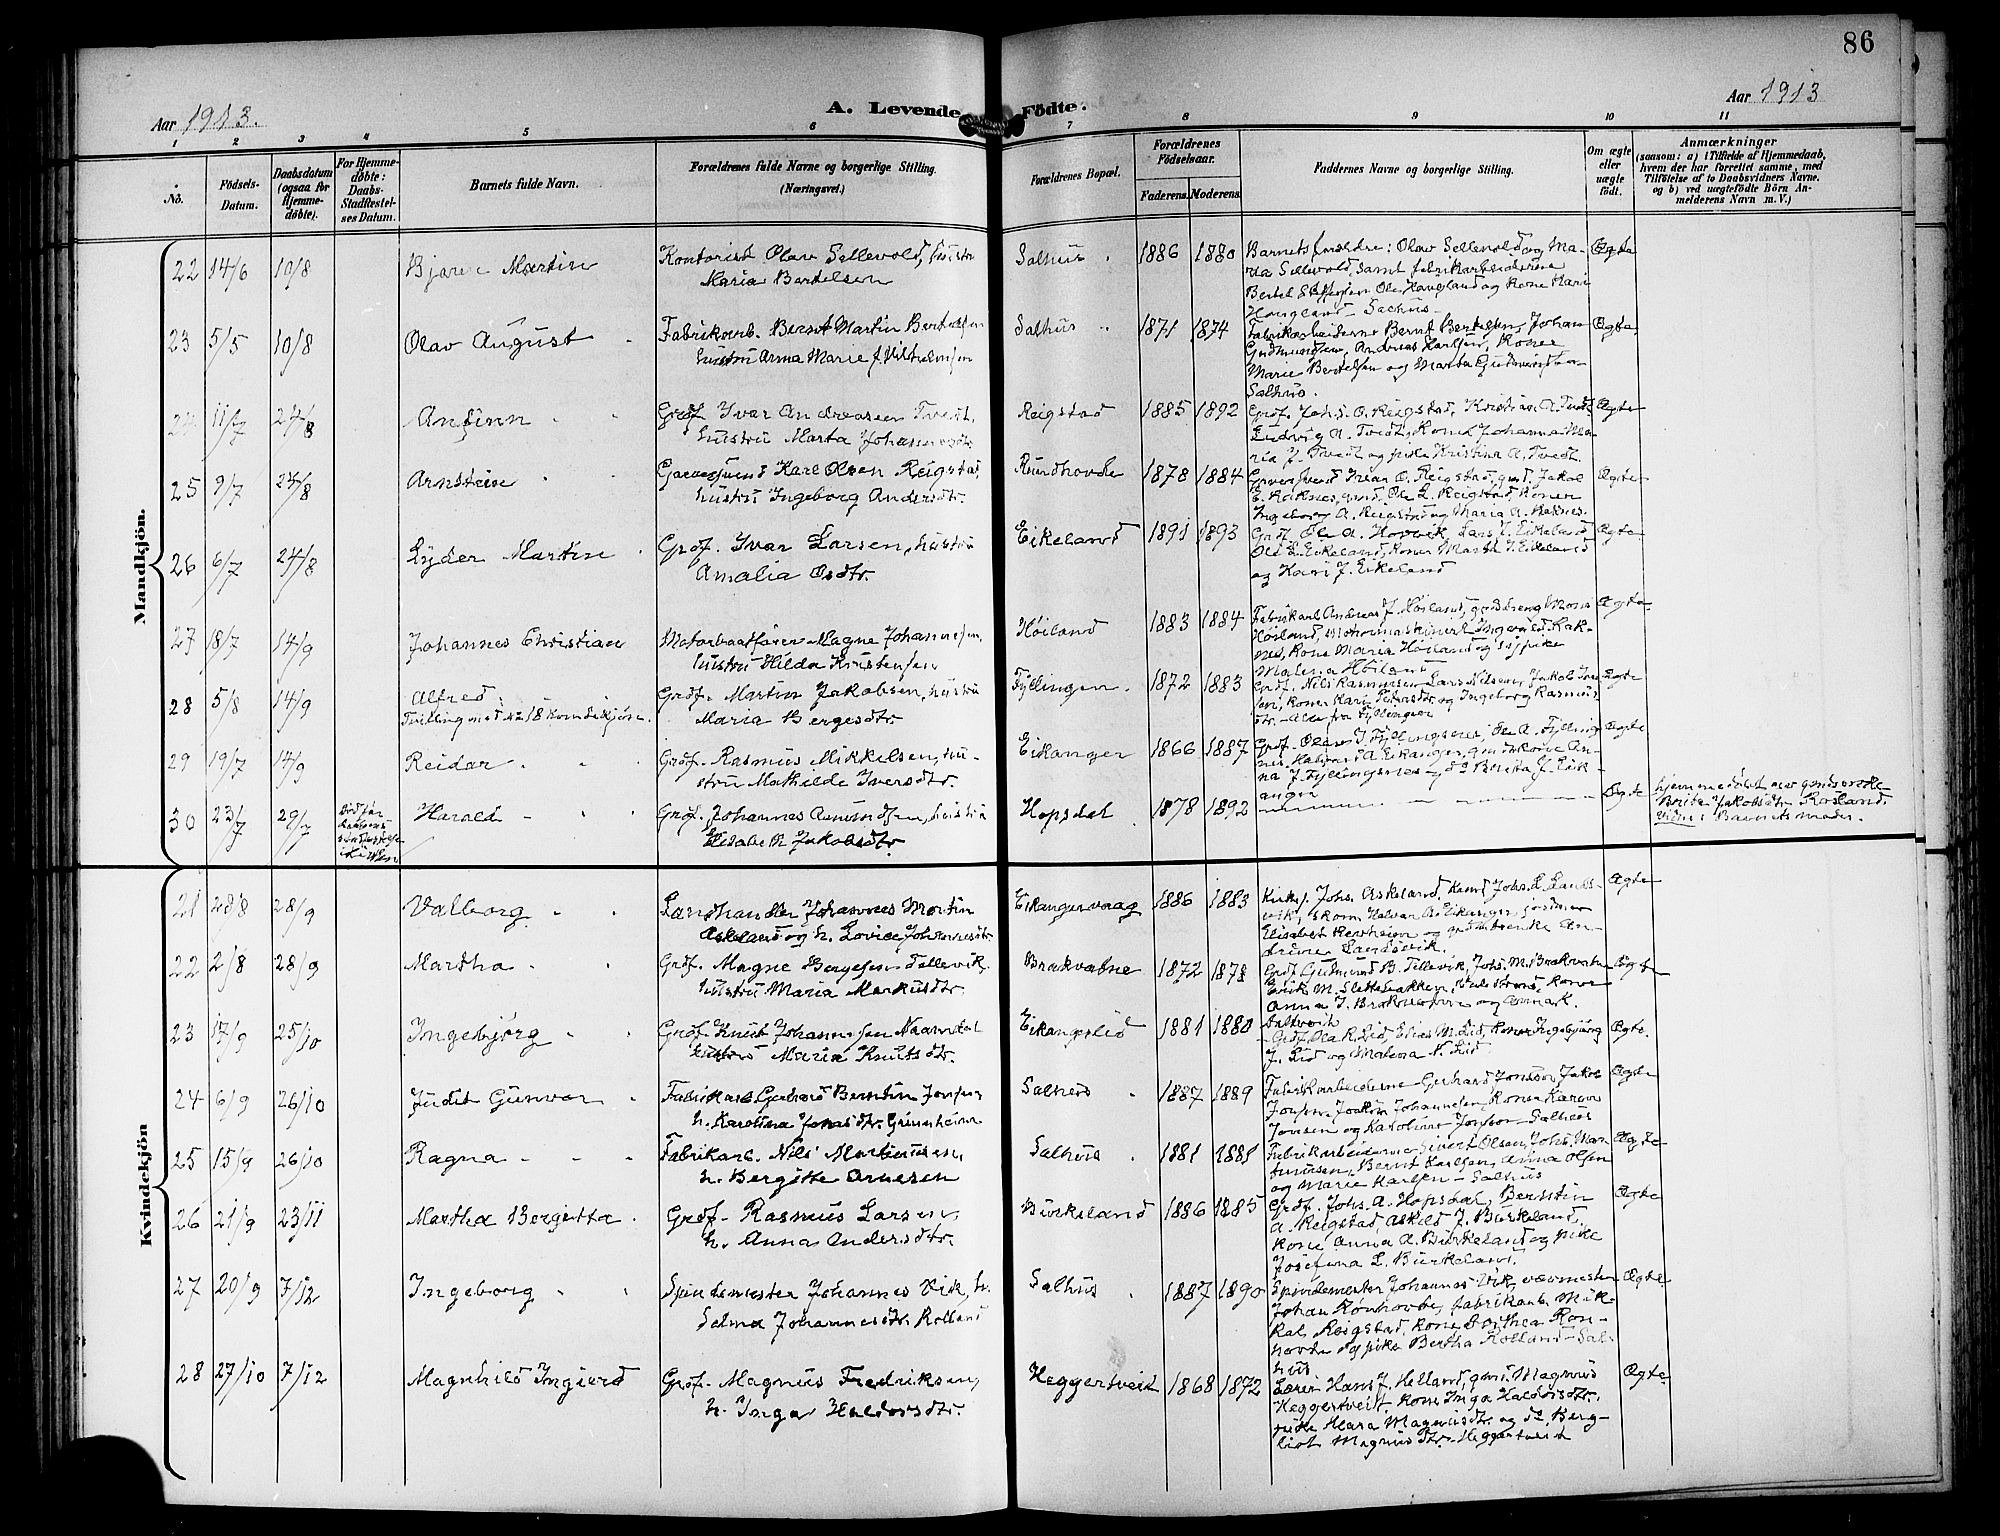 86
Aar 1913.
A. Levende Födte.
Aar 1913
1 2 3 4 5 6 7 8 9 10 11
No.
Födsels-Datum.
Daabsdatum (ogsaa for Hjemme-döbte).
For Hjemme-döbte: Daabs-Stadfæstel-ses Datum.
Barnets fulde Navn.
Forældrenes fulde Navne og borgerlige Stilling. (Næringsvei.)
Forældrenes Bopæl.
Forældrenes Födselsaar.
Faderens. Moderens.
Faddernes Navne og borgerlige Stilling.
Om ægte eller uægte födt.
Anmærkninger
(saasom: a) i Tilfælde af Hjemmedaab,
hvem der har forrettet samme, med
Tilföielse af to Daabsvidners Navne.
og b) ved uægtefödte Börn An-
melderens Navn m. V.)
Mandkjön.
22 14/6 10/8 Bjarne Martin
Kontorist Olav Sellevold, hustru
Maria Bertelsen
Salhus 1886 1880
Barnets forældre: Olav Sellevold og Ma-
ria Sellevold, samt fabrikarbeiderne
Ole Haugland og kone Mari
Haugland - Salhus
Ægte
23 5/5 10/8 Olav August
Fabrikarb. Bernt Martin Bertelsen
hustru Anna Marie f. Vilhelmsen
Salhus 1871 1874
Fabrikarbeiderne Bernt Bertelsen, Johan
Gudmundsen, Andreas Karlsen, Koner
Marie Bertelsen og Marta Gudmundsen
Salhus.
Ægte
24 11/7 24/8 Anfinn
Grdf. Ivar Andreassen Tvedt,
hustru Marta Johannesdtr
Reigstad 1885 1892
Grdf. Johs. A. Reigstad, Kristian A. Tvedt
Ludvig A. Tvedt, Kone Johanna Ma-
ria J. Tvedt og pike Kristina A. Tvedt.
Ægte
25 9/7 24/8 Arnstein
Garversvend Karl Olsen Reigstad,
hustru Ingeborg Andersdtr.
Rundhovde 1878 1884
Garversvend Ivar O. Reigstad, gmd. Jakob
E. Raknes, gmd. Ole L. Reigstad, Koner
Ingeborg A. Reigstad og Maria A. Raknes.
Ægte
26 6/7 24/8 Lyder Martin
Grdf. Ivar Larsen, hustru
Amalia Osdtr.
Eikeland 1891 1893
Grdf. Ole A. Hovvik, Lars J. Eikeland
Ole L. Eikeland, Koner Marta J. Eikeland
og Kari J. Eikeland
Ægte
27 18/7 14/9 Johannes Christian
Motorbaatfører Magne Johannesen,
hustru Hilda Kristensen
Høiland 1883 1884
Fabrikarb. Andreas J. Høiland, gaarddreng Mons
Høiland, motormaskinist Ingvald Rak-
nes, Kone Maria Høiland og pike
Malena Høiland
Ægte
28 5/8 14/9 Alfred
Tvilling med No 18 kvindekjøn.
Grdf. Martin Jakobsen, hustru
Maria Bergesdtr
Fyllingen 1872 1883
Grdf. Nils Rasmussen Lars Nilsen, Jakob Iver-
sen, Koner Kari Petersdtr og Ingeborg Rasmus-
dtr. - Alle fra Fyllingen
Ægte
29 19/7 14/9 Reidar
Grdf. Rasmus Mikkelsen, hu-
stru Mathilde Iversdtr.
Eikanger 1866 1887
Grdf. Olav J. Fyllingsnes, Ole A. Fylling-
nes, Halvard A. Eikanger, gmds kone An-
na J. Fyllingsnes og do Berita J. Eik-
anger
Ægte
30 23/7 29/7 Harald
Grdf. Johannes Amundsen, hustru
Elisabeth Jakobsdtr.
Hopsdal 1878 1892
Ægte
hjemmedøbt av gmdsenke
Brita Jakobsdtr Rosland.
Vidne: Barnets moder.
Kvindekjön
21 28/8 28/9 Valborg
Landhandler Johannes Martin
Askeland og h. Lovise Johannesdtr
Eikangervaag 1886 1883
Kirkes. Johs. Askeland, Kand. Johs. L. Lands-
vik, skom. Halvar A. Eikanger, jordmor
Elisabet Herheim og gmdsenke An-
drine Landsvik.
Ægte
22 2/8 28/9 Martha
Grdf. Magne Bergesen Tellevik,
hustru Maria Markusdtr.
Brakvatne 1872 1878
Grdf. Gudmund B. Tellevik, Johs. M. Brakvatne
Erik M. Slettebakken, kone
Anna J. Brakvatne og
Ægte
23 17/9 25/10 Ingebjörg
Grdf. Knut Johannessen Naamdal
hustru Maria Knutsdtr.
Eikangslid 1881 1880
Grdf. Ola K. Lid, Elias M. Lid, koner Ingebjörg
J. Lid og Malena N. Lid
Ægte.
24 6/9 26/10 Judit Gunvor
Fabrikarb. Gerhard Berntin Jonsen
h. Karolina Jonasdtr. Grimheim
Salhus 1887 1889
Fabrikarbeiderne Gerhard Jonsen, Jakob
Jonsen, Joakim Johannesen, Koner Karen
Jonsen og Karoline Jonsen - Salhus
Ægte
25 15/9 26/10 Ragna
Fabrikarb. Nils Martinusen,
h. Bergitte Arnesen
Salhus 1881 1881
Fabrikarbeiderne Sivert Olsen, Johs. Mar-
tinusen, Bernt Karlsen, Anna Olsen
og Marie Karlsen - Salhus
Ægte
26 21/9 23/11 Martha Bergetta
Grdf. Rasmus Larsen,
h. Anna Andersdtr.
Burkeland 1886 1885
Grdf. Johs. A. Hopsdal, Berntin
A. Reigstad, Askild J. Burkeland,
Kone Anna A. Burkeland og pike
Josefina L. Burkeland.
Ægte
27 20/9 7/12 Ingeborg
Spindemester Johannes Vik, h.
Selma Johannesdtr. Rolland
Salhus 1887 1890
Spindemester Johannes Vik, vævmester
Johan Rønhovde, fabrikarb. Mik-
kal Reigstad, kone Dorthea Røn-
hovde og pike Bertha Rolland - Sal-
hus
Ægte
28 27/10 7/12 Magnhild Ingjerd
Grdf. Magnus Fredriksen,
h. Inga Haldorsdtr.
Heggertveit 1868 1872
Lærer Hans J. Helland, gmd. Magnus
Heggertveit, kone Inga Haldorsdtr.
pike Mara Magnusdtr. og do. Berg-
liot Magnusdtr. Heggertveit
Ægte